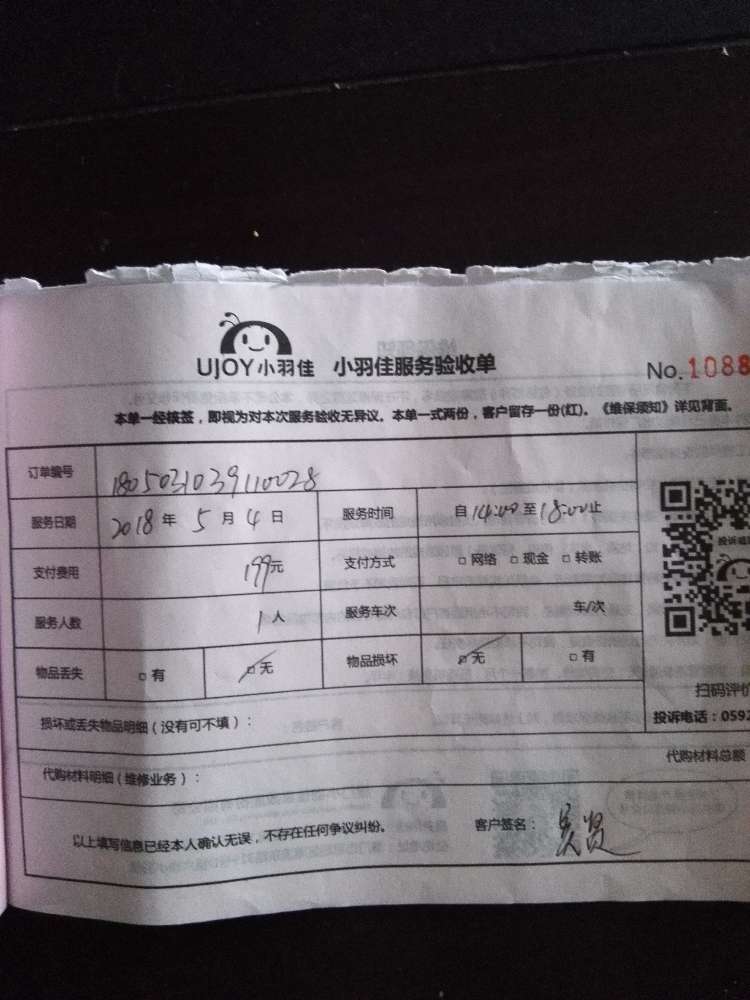 UJOY小羽佳 小羽佳服务验收单 No.1088
本单一经核签，即视为对本次服务验收无异议。本单一式两份，客户留存一份(红)。《维保须知》详见背面。
订单编号 1805031039110028
服务日期 2018年5月4日 服务时间 自14:00至18:00止
支付费用 199元 支付方式 □网络 □现金 □转账
投诉
服务人数 1人 服务车次 车/次
物品丢失 □有 □无 物品损坏 □无 □有
扫码评价
损坏或丢失物品明细（没有可不填）： 投诉电话：0592
代购材料明细（维修业务）： 代购材料总额
以上填写信息已经本人确认无误，不存在任何争议纠纷。 客户签名：吴贤